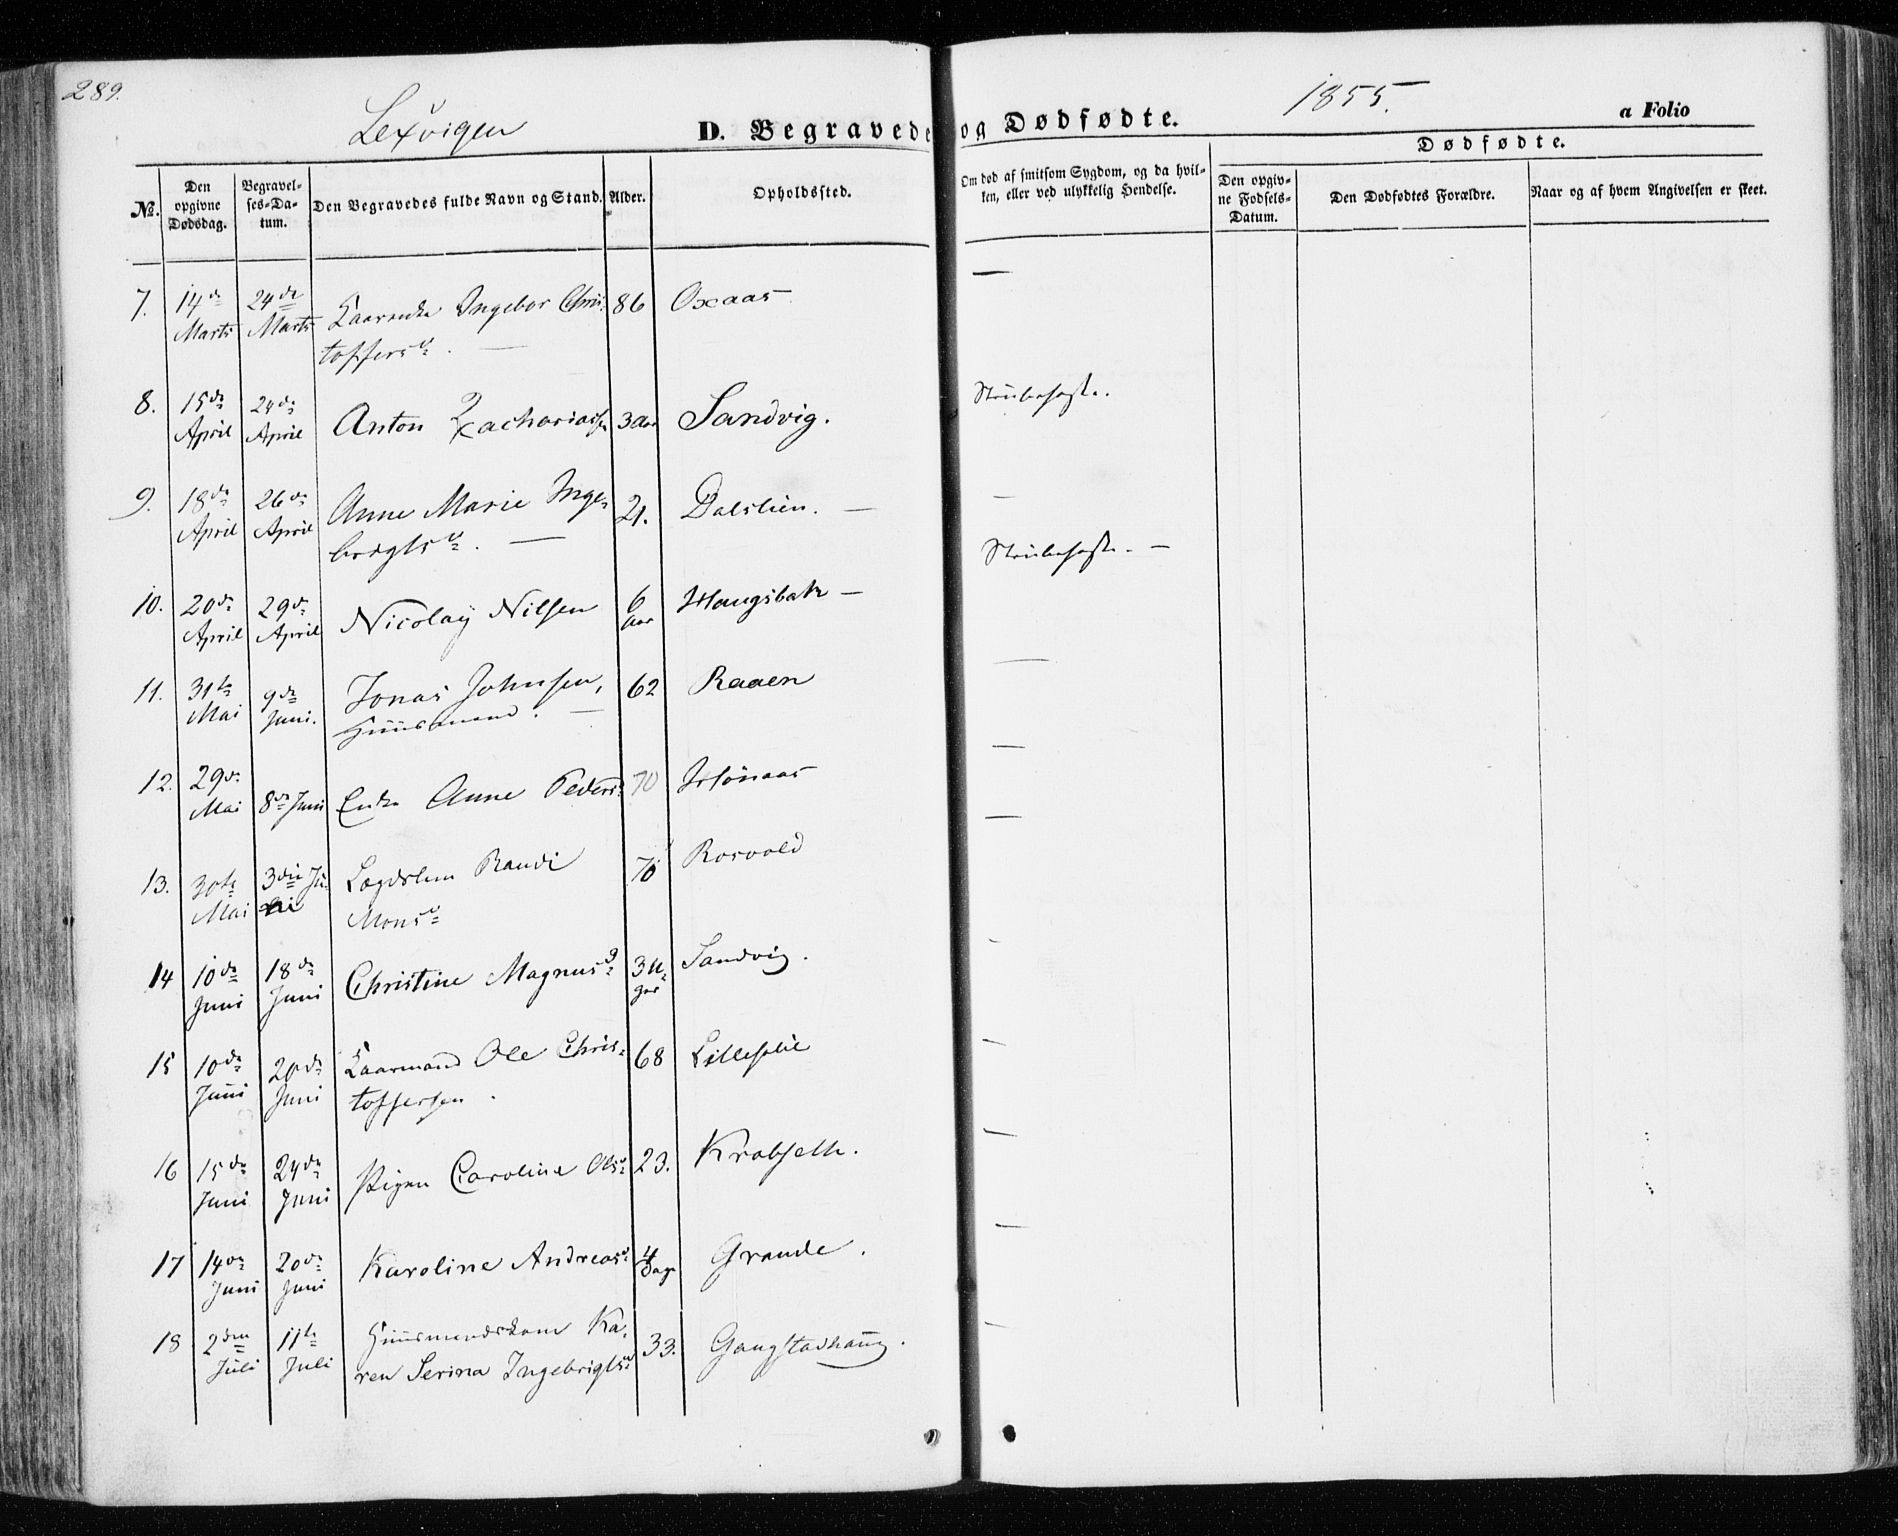 289.
Lexvigen
D. Begravede og Dødfødte.
1855.
a Folio
No.
Den opgivne Dødsdag.
Begravelses-Datum.
Den Begravedes fulde Navn og Stand.
Alder.
Opholdssted.
Om død af smitsom Sygdom, og da hvil-
ken, eller ved ulykkelig Hendelse.
Dødfødte.
Den opgiv-
ne Fødsels-
Datum.
Den Dødfødtes Forældre.
Naar og af hvem Angivelsen er skeet.
7. 14de Marts 24de Marts Kaarenke Ingebor Chris- 86 Oxaas —
toffersd. —
8. 15de April 24de April Anton Zachariassen 3 Aar Sandvig. Strubehoste.
9. 18de April 26de April Anne Marie Inge- 21. Dalslien. — —
brigtsd. —
10. 20de April 29de April Nicolaÿ Nilsen 6 Aar Haugsbak — Strubehoste. —
11. 31te Mai 9de Juni. Jonas Johnsen, 62 Raaen —
Huusmand. —
12. 29de Mai 8de Juni Enke Anne Peders 70 —
13. 30te Mai 3die Ju- Lægdslem Randi 70 Rosvold —
Monsd.
14 10de Juni 18de Juni Christine Magnusd. 3 U- Sandvig.
ger
15 10de Juni 20de Juni Kaarmand Ole Chris- 68 Lillelie —
toffersen.
16 15de Juni 24de Juni Pigen Caroline Olsd. 23. Krabseth. —
17 14de Juni 20de Juni Karoline Andreasd. 4 Dage Grande. —
18 2den Juli 11te Juli Huusmandskone Ka- 33. Gangstadhaug.
ren Serina Ingebrigtsd.